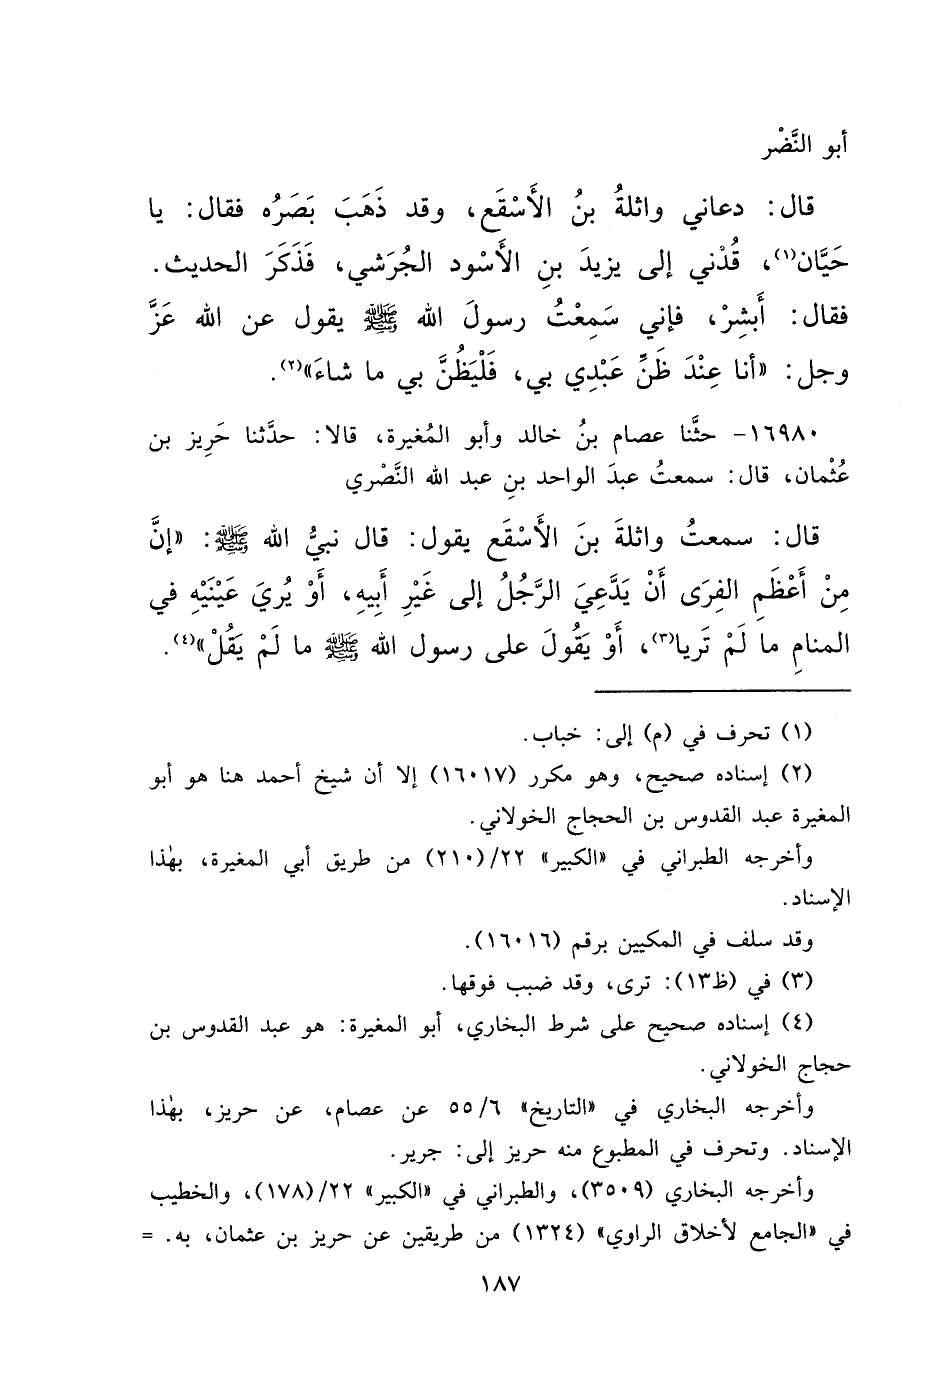 أبو النَّضْر
قال: دعاني واثلةُ بنُ الأَسْقَع، وقد ذَهَبَ بَصَرُه فقال: يا
حَيَّان(١)، قُدْني إلى يزيدَ بنِ الأَسْود الجُرَشي، فَذَكَرَ الحديث.
فقال: أَبشِرْ، فإني سَمِعْتُ رسولَ الله ﷺ يقول عن الله عَزَّ
وجل: «أنا عِنْدَ ظَنِّ عَبْدِي بي، فَلْيَظُنَّ بي ما شاءَ»(٢).
١٦٩٨٠- حثَّنا عصام بنُ خالد وأبو المُغيرة، قالا: حدَّثنا حَرِيز بن
عُثْمان، قال: سمعتُ عبدَ الواحد بنِ عبد الله النَّصْري
قال: سمعتُ واثلةَ بنَ الأَسْقَع يقول: قال نبيُّ الله ﷺ: «إنَّ
مِنْ أَعْظَمِ الفِرَى أَنْ يَدَّعِيَ الرَّجُلُ إلى غَيْرِ أَبِيهِ، أَوْ يُريَ عَيْنَيْهِ في
المنامِ ما لَمْ تَرِيا(٣)، أَوْ يَقُولَ على رسول الله ﷺ ما لَمْ يَقُلْ»(٤).
(١) تحرف في (م) إلى: خباب.
(٢) إسناده صحيح، وهو مكرر (١٦٠١٧) إلا أن شيخ أحمد هنا هو أبو
المغيرة عبد القدوس بن الحجاج الخولاني.
وأخرجه الطبراني في «الكبير» ٢٢/(٢١٠) من طريق أبي المغيرة، بهٰذا
الإسناد.
وقد سلف في المكيين برقم (١٦٠١٦).
(٣) في (ظ١٣): ترى، وقد ضبب فوقها.
(٤) إسناده صحيح على شرط البخاري، أبو المغيرة: هو عبد القدوس بن
حجاج الخولاني.
وأخرجه البخاري في «التاريخ» ٥٥/٦ عن عصام، عن حريز، بهٰذا
الإسناد. وتحرف في المطبوع منه حريز إلى: جرير.
وأخرجه البخاري (٣٥٠٩)، والطبراني في «الكبير» ٢٢/(١٧٨)، والخطيب
في «الجامع لأخلاق الراوي» (١٣٢٤) من طريقين عن حريز بن عثمان، به. =
١٨٧